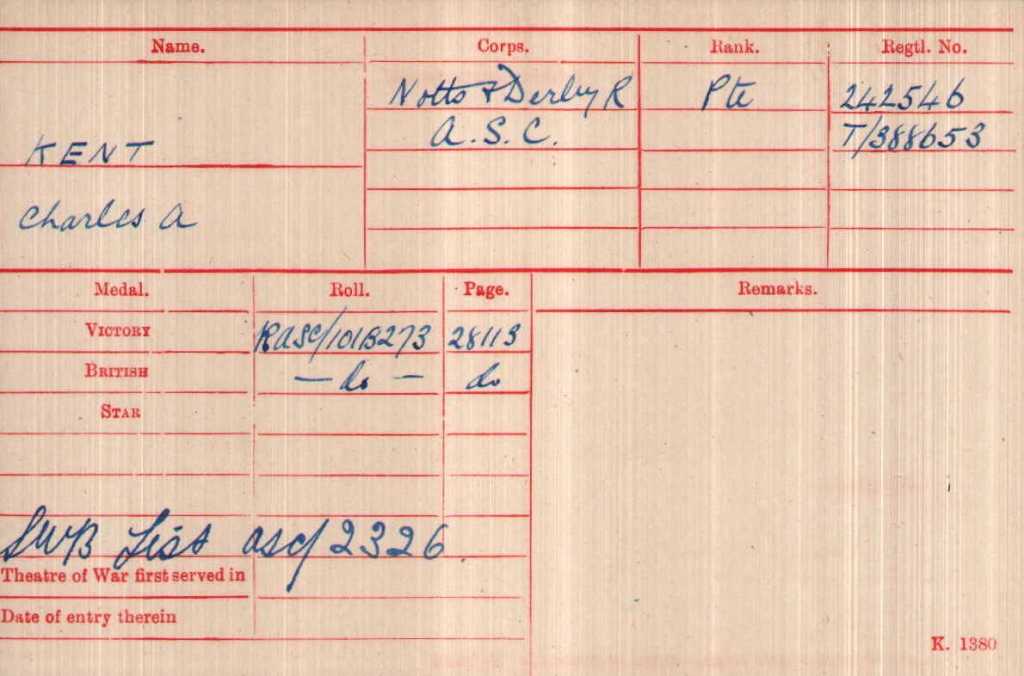 Name. Corps. Rank. Regtl. No.
Notts & Derby R Pte 242546
KENT A.S.C. T/388653
Charles A
Medal. Roll. Page. Remarks.
VICTORY RASC/101B273 28113
BRITISH — do — do
STAR
SWB List ASC/2326.
Theatre of War first served in
Date of entry therein
K. 1380